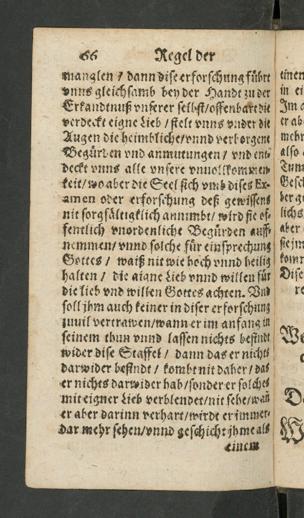 66 Regel der
manglen / dann dise erforschung führt
vnns gleichsamb bey der Handt zu der
Erkandtnuß vnserer selbst/offenbart die
verdeckt eigne Lieb / stelt vnns vnder die
Augen die heimbliche/vnnd verborgene
Begürden vnd anmutungen / vnd ent-
deckt vnns alle vnsere vnuollkommen-
keit/wo aber die Seel sich vmb dises Ex-
amen oder erforschung deß gewissens
nit sorgfältigklich annimbt/ wird sie of-
fentlich vnordenliche Begürden auff-
nemmen/vnnd solche für einsprechung
Gottes / waiß nit wie hoch vnnd heilig
halten / die aigne Lieb vnnd willen für
die lieb vnd willen Gottes achten. Vnd
soll jhm auch keiner in diser erforschung
zuuil vertrawen/wann er im anfang in
seinem thun vnnd lassen nichts befindt
wider dise Staffel / dann das er nichts
darwider befindt / kombt nit daher / das
er nichts darwider hab/sonder er solches
mit eigner Lieb verblendet/nit sehe/wañ
er aber darinn verhart/wirdt er immer-
dar mehr sehen/vnnd geschicht jhme als
einem